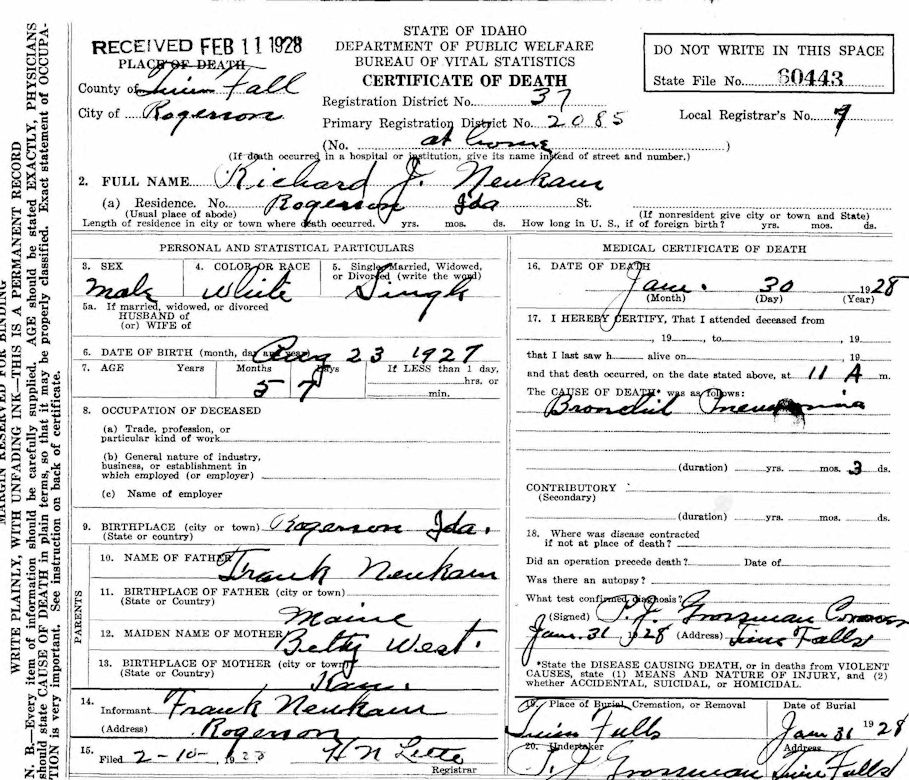 RECEIVED FEB 11 1928
STATE OF IDAHO
DEPARTMENT OF PUBLIC WELFARE
BUREAU OF VITAL STATISTICS
CERTIFICATE OF DEATH
DO NOT WRITE IN THIS SPACE
State File No. 60443
PLACE OF DEATH
County of Twin Fall
City of Rogerson
Registration District No. 37
Primary Registration District No. 2085
Local Registrar's No. 9
(No. at home )
(If death occurred in a hospital or institution, give its name instead of street and number.)
2. FULL NAME Richard J. Neukam
(a) Residence. No. Rogerson Ida St.
(Usual place of abode)
(If nonresident give city or town and State)
Length of residence in city or town where death occurred. yrs. mos. ds. How long in U. S., if of foreign birth? yrs. mos. ds.
PERSONAL AND STATISTICAL PARTICULARS
3. SEX
Male
4. COLOR OR RACE
White
5. Single, Married, Widowed,
or Divorced (write the word)
Single
5a. If married, widowed, or divorced
HUSBAND of
(or) WIFE of
6. DATE OF BIRTH (month, day and year) Aug 23 1927
7. AGE Years Months Days If LESS than 1 day,
5 7 hrs. or
min.
8. OCCUPATION OF DECEASED
(a) Trade, profession, or
particular kind of work
(b) General nature of industry,
business, or establishment in
which employed (or employer)
(c) Name of employer
9. BIRTHPLACE (city or town) Rogerson Ida.
(State or country)
PARENTS
10. NAME OF FATHER Frank Neukam
11. BIRTHPLACE OF FATHER (city or town)
(State or Country) Maine
12. MAIDEN NAME OF MOTHER Betty West.
13. BIRTHPLACE OF MOTHER (city or town)
(State or Country) Kan.
14.
Informant Frank Neukam
(Address) Rogerson
15.
Filed 2-10-, 1928
Registrar
MEDICAL CERTIFICATE OF DEATH
16. DATE OF DEATH
Jan. 30 1928
(Month) (Day) (Year)
17. I HEREBY CERTIFY, That I attended deceased from
, 19 , to , 19
that I last saw h alive on , 19
and that death occurred, on the date stated above, at 11 A m.
The CAUSE OF DEATH* was as follows:
Bronchial Pneumonia
(duration) yrs. mos. 3 ds.
CONTRIBUTORY
(Secondary)
(duration) yrs. mos. ds.
18. Where was disease contracted
if not at place of death?
Did an operation precede death? Date of
Was there an autopsy?
What test confirmed diagnosis?
(Signed) P. J. Grossman Coroner
Jan. 31 1928 (Address) Twin Falls
*State the DISEASE CAUSING DEATH, or in deaths from VIOLENT
CAUSES, state (1) MEANS AND NATURE OF INJURY, and (2)
whether ACCIDENTAL, SUICIDAL, or HOMICIDAL.
19. Place of Burial, Cremation, or Removal Date of Burial
Twin Falls Jan 31 1928
20. Undertaker Address
P. J. Grossman Twin Falls
MARGIN RESERVED FOR BINDING
WRITE PLAINLY, WITH UNFADING INK—THIS IS A PERMANENT RECORD
N. B.—Every item of information should be carefully supplied. AGE should be stated EXACTLY, PHYSICIANS
should state CAUSE OF DEATH in plain terms, so that it may be properly classified. Exact statement of OCCUPA-
TION is very important. See instruction on back of certificate.